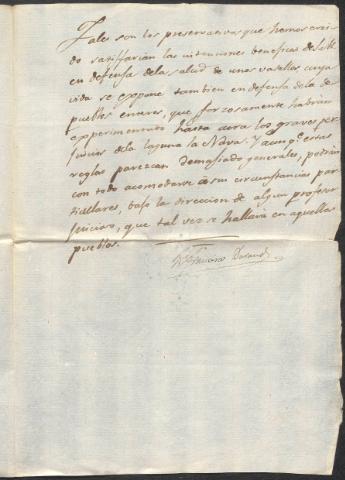 Tales son los preservativos que hemos crei-
do satisfarian las intenciones beneficas de
en defensa de la salud de unos vasallos, cuya
vida se expone tambien en defensa de la de
que forzosamente habran
experimentado hasta aora los graves per-
juicios de la laguna la Nava. Y aunq.e estas
reglas parezcan demasiado generales, podrán
con todo acomodarse à sus circunstancias par-
ticulares, baxo la direccion de algun profesor
juicioso, que tal vez se hallará en aquellos
pueblos.